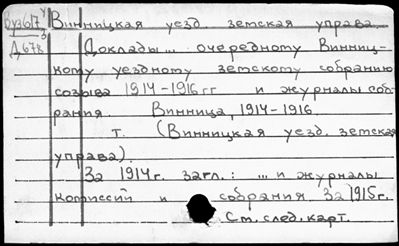 Винницкая уезд. земская управа.
Д 67к
Доклады... очередному Винниц-
кому уездному земскому собранию
созыва 1914-1916 гг и журналы соб-
рания. Винница, 1914-1916.
т. (Винницкая уезд. земская
управа).
За 1914 г. загл.: ... и журналы
комиссий и собрания. За 1915 г.
См. след. карт.